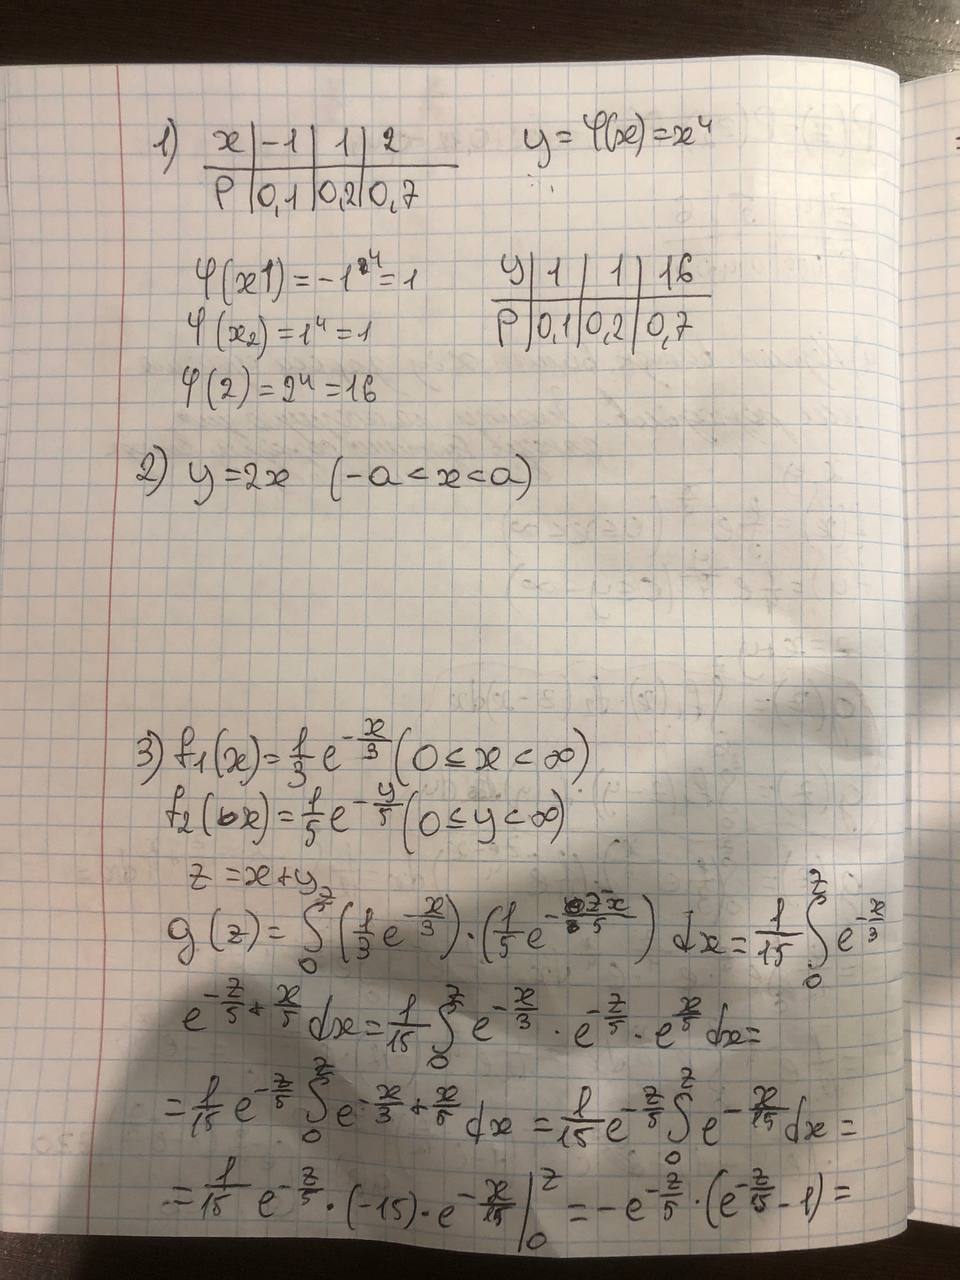 1) x | -1 | 1 | 2 y = φ(x) = x⁴
P | 0,1 | 0,2 | 0,7
φ(x1) = -1⁴ = 1 y | 1 | 1 | 16
φ(x₂) = 1⁴ = 1 P | 0,1 | 0,2 | 0,7
φ(2) = 2⁴ = 16
2) y = 2x (-a < x < a)
3) f₁(x) = 1/3 e^(-x/3) (0 ≤ x < ∞)
f₂(x) = 1/5 e^(-y/5) (0 ≤ y < ∞)
z = x + y
g(z) = ∫₀^z (1/3 e^(-x/3)) · (1/5 e^(-(z-x)/5)) dx = 1/15 ∫₀^z e^(-x/3)
e^(-z/5 + x/5) dx = 1/15 ∫₀^z e^(-x/3) · e^(-z/5) · e^(x/5) dx =
= 1/15 e^(-z/5) ∫₀^z e^(-x/3 + x/5) dx = 1/15 e^(-z/5) ∫₀^z e^(-x/15) dx =
= 1/15 e^(-z/5) · (-15) · e^(-x/15) |₀^z = -e^(-z/5) · (e^(-z/15) - 1) =